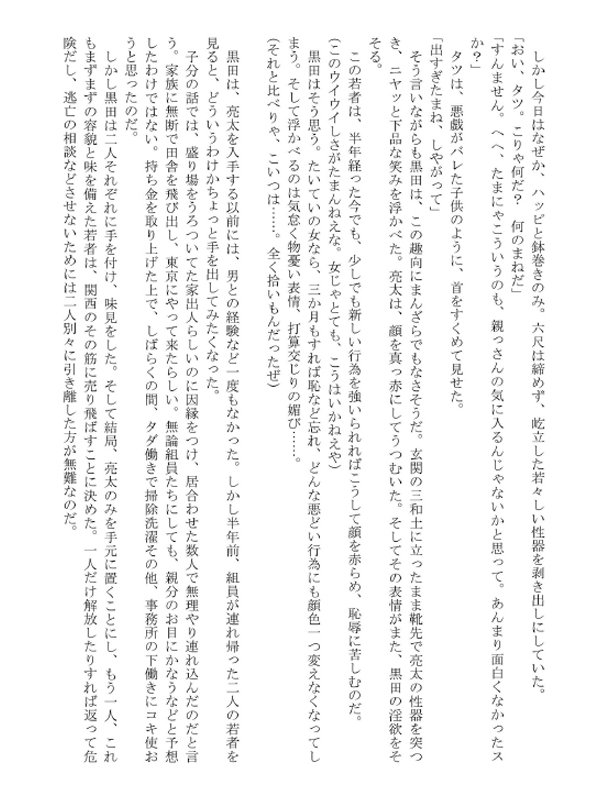 しかし今日はなぜか、ハッピと鉢巻きのみ。六尺は締めず、屹立した若々しい性器を剥き出しにしていた。
「おい、タツ。こりゃ何だ？　何のまねだ」
「すんません。へへ、たまにゃこういうのも、親っさんの気に入るんじゃないかと思って。あんまり面白くなかったス
か？」
タツは、悪戯がバレた子供のように、首をすくめて見せた。
「出すぎたまね、しやがって」
そう言いながらも黒田は、この趣向にまんざらでもなさそうだ。玄関の三和土に立ったまま靴先で亮太の性器を突つ
き、ニヤッと下品な笑みを浮かべた。亮太は、顔を真っ赤にしてうつむいた。そしてその表情がまた、黒田の淫欲をそ
そる。
この若者は、半年経った今でも、少しでも新しい行為を強いられればこうして顔を赤らめ、恥辱に苦しむのだ。
（このウイウイしさがたまんねえな。女じゃとても、こうはいかねえや）
黒田はそう思う。たいていの女なら、三か月もすれば恥など忘れ、どんな悪どい行為にも顔色一つ変えなくなってし
まう。そして浮かべるのは気怠く物憂い表情、打算交じりの媚び……。
（それと比べりゃ、こいつは……。全く拾いもんだったぜ）
黒田は、亮太を入手する以前には、男との経験など一度もなかった。しかし半年前、組員が連れ帰った二人の若者を
見ると、どういうわけかちょっと手を出してみたくなった。
子分の話では、盛り場をうろついてた家出人らしいのに因縁をつけ、居合わせた数人で無理やり連れ込んだのだと言
う。家族に無断で田舎を飛び出し、東京にやって来たらしい。無論組員たちにしても、親分のお目にかなうなどと予想
したわけではない。持ち金を取り上げた上で、しばらくの間、タダ働きで掃除洗濯その他、事務所の下働きにコキ使お
うと思ったのだ。
しかし黒田は二人それぞれに手を付け、味見をした。そして結局、亮太のみを手元に置くことにし、もう一人、これ
もまずまずの容貌と味を備えた若者は、関西のその筋に売り飛ばすことに決めた。一人だけ解放したりすれば返って危
険だし、逃亡の相談などさせないためには二人別々に引き離した方が無難なのだ。